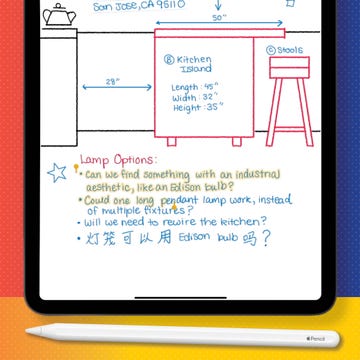 San Jose, CA 95110
50"
Ⓑ Kitchen
Island
Ⓒ Stools
28"
Length: 45"
Width: 32"
Height: 35"
Lamp Options:
• Can we find something with an industrial
aesthetic, like an Edison bulb?
• Could one long pendant lamp work, instead
of multiple fixtures?
• Will we need to rewire the kitchen?
• 灯笼可以用 Edison bulb 吗?
Pencil